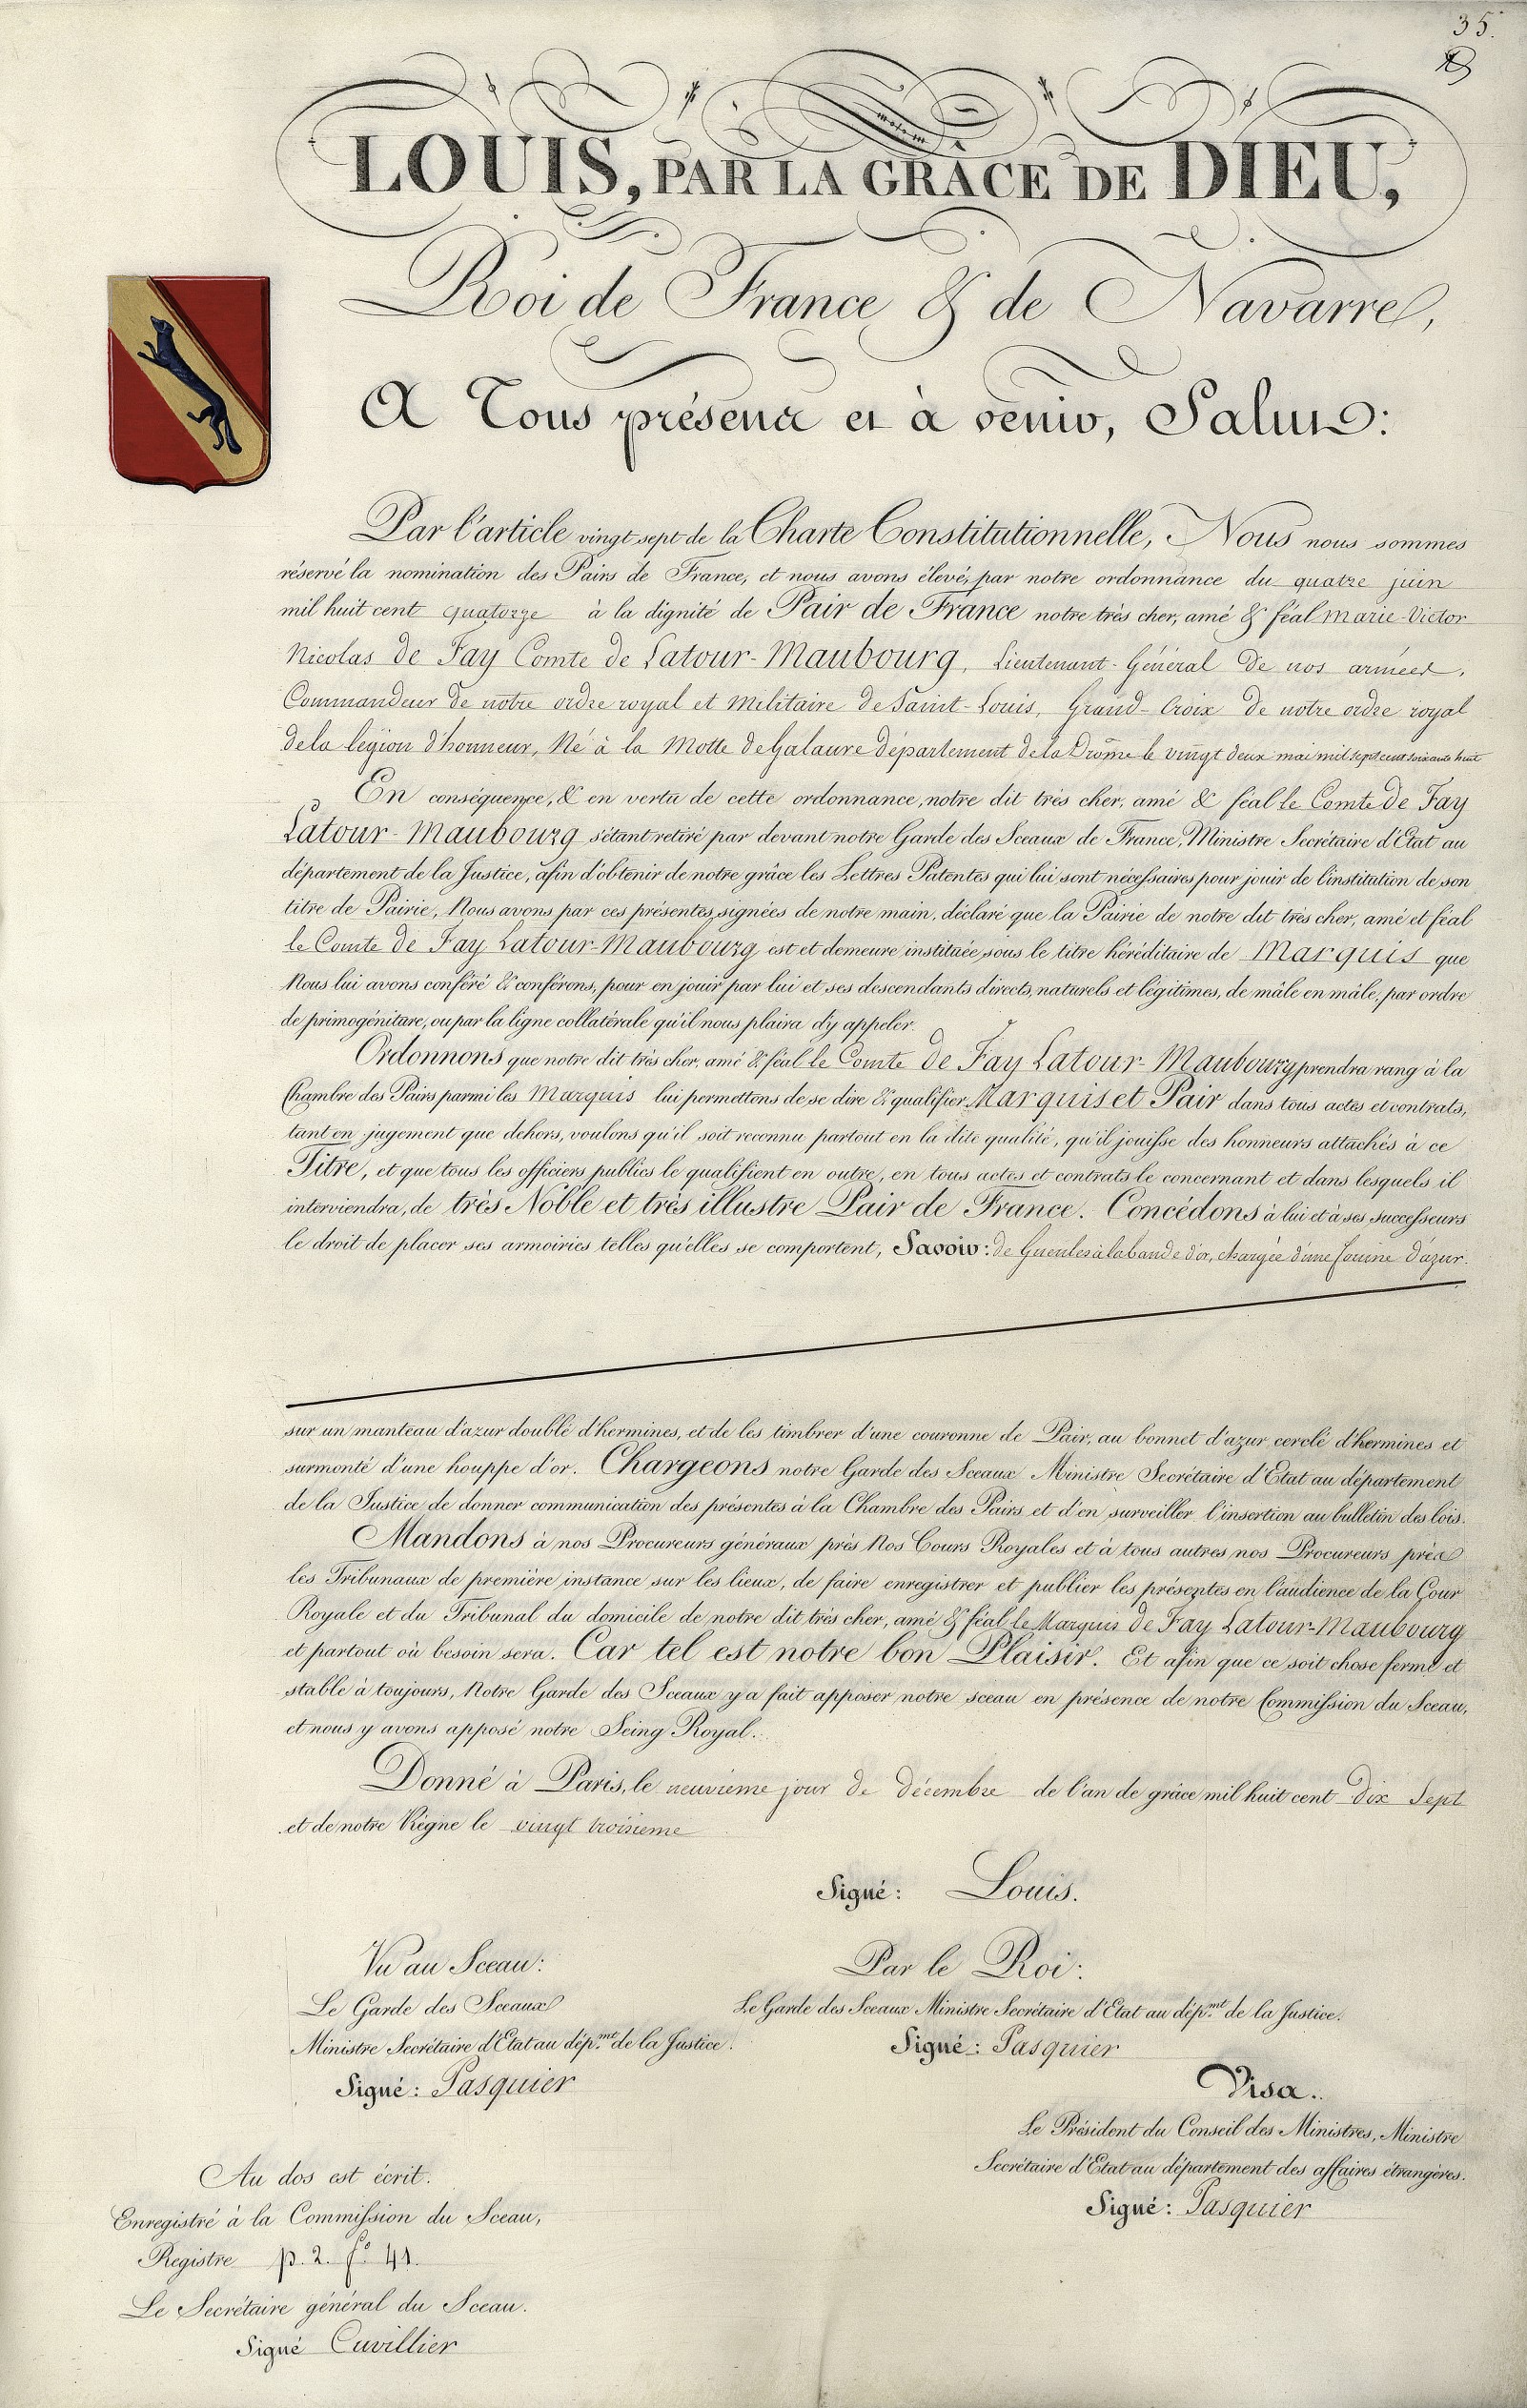 35.
LOUIS, PAR LA GRÂCE DE DIEU,
Roi de France & de Navarre,
A Tous présens et à venir, Salut:
Par l'article vingt sept de la Charte Constitutionnelle, Nous nous sommes
réservé la nomination des Pairs de France, et nous avons élevé, par notre ordonnance du quatre juin
mil huit cent quatorze à la dignité de Pair de France notre très cher, amé & féal Marie-Victor
Nicolas de Fay Comte de Latour-Maubourg, Lieutenant-Général de nos armées,
Commandeur de notre ordre royal et militaire de Saint-Louis, Grand-Croix de notre ordre royal
de la légion d'honneur, Né à la Motte de Galaure département de la Drôme le vingt deux mai mil sept cent soixante huit
En conséquence, & en vertu de cette ordonnance, notre dit très cher, amé & féal le Comte de Fay
Latour-Maubourg s'étant retiré par devant notre Garde des Sceaux de France, Ministre Secrétaire d'Etat au
département de la Justice, afin d'obtenir de notre grâce les Lettres Patentes qui lui sont nécessaires pour jouir de l'institution de son
titre de Pairie, Nous avons par ces présentes, signées de notre main, déclaré que la Pairie de notre dit très cher, amé et féal
le Comte de Fay Latour-Maubourg est et demeure instituée sous le titre héréditaire de Marquis que
Nous lui avons conféré & conférons, pour en jouir par lui et ses descendants directs, naturels et légitimes, de mâle en mâle, par ordre
de primogéniture, ou par la ligne collatérale qu'il nous plaira d'y appeler.
Ordonnons que notre dit très cher, amé & féal le Comte de Fay Latour-Maubourg prendra rang à la
Chambre des Pairs parmi les Marquis lui permettons de se dire & qualifier Marquis et Pair dans tous actes et contrats,
tant en jugement que dehors, voulons qu'il soit reconnu partout en la dite qualité, qu'il jouisse des honneurs attachés à ce
Titre, et que tous les officiers publics le qualifient en outre, en tous actes et contrats le concernant et dans lesquels il
interviendra, de très Noble et très illustre Pair de France. Concédons à lui et à ses successeurs
le droit de placer ses armoiries telles qu'elles se comportent, Savoir: de Gueules à la bande d'or, chargée d'une fouine d'azur.
sur un manteau d'azur doublé d'hermines, et de les timbrer d'une couronne de Pair, au bonnet d'azur cerclé d'hermines et
surmonté d'une houppe d'or. Chargeons notre Garde des Sceaux Ministre Secrétaire d'Etat au département
de la Justice de donner communication des présentes à la Chambre des Pairs et d'en surveiller l'insertion au bulletin des lois.
Mandons à nos Procureurs généraux près Nos Cours Royales et à tous autres nos Procureurs près
les Tribunaux de première instance sur les lieux, de faire enregistrer et publier les présentes en l'audience de la Cour
Royale et du Tribunal du domicile de notre dit très cher, amé & féal le Marquis de Fay Latour-Maubourg
et partout où besoin sera. Car tel est notre bon Plaisir. Et afin que ce soit chose ferme et
stable à toujours, Notre Garde des Sceaux y a fait apposer notre sceau en présence de notre Commission du Sceau,
et nous y avons apposé notre Seing Royal.
Donné à Paris, le neuvième jour de décembre de l'an de grâce mil huit cent dix sept
et de notre Règne le vingt troisième
Signé: Louis.
Vu au Sceau:
Le Garde des Sceaux
Ministre Secrétaire d'Etat au dép.mt de la Justice.
Signé: Pasquier
Par le Roi:
Le Garde des Sceaux Ministre Secrétaire d'Etat au dép.mt de la Justice.
Signé: Pasquier
Visa.
Le Président du Conseil des Ministres, Ministre
Secrétaire d'Etat au département des affaires étrangères.
Signé: Pasquier
Au dos est écrit.
Enregistré à la Commission du Sceau,
Registre p. 2. f.o 41.
Le Secrétaire général du Sceau.
Signé Cuvillier